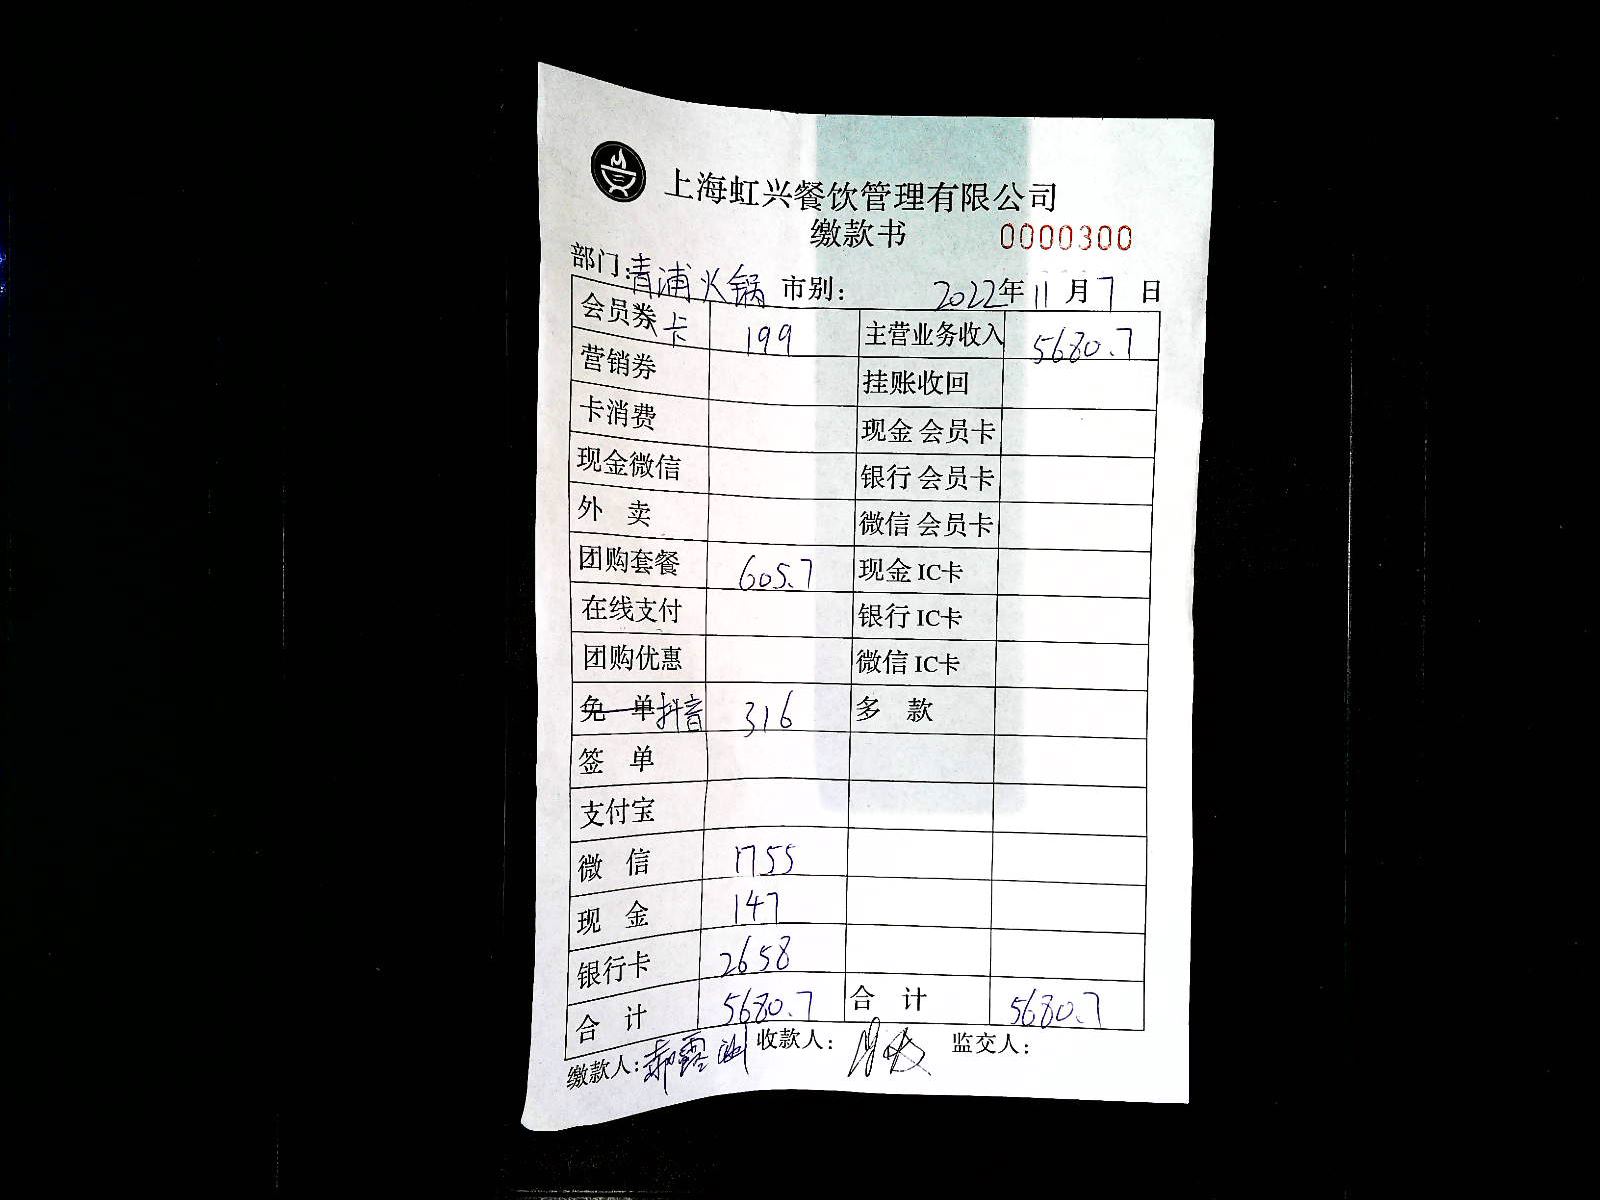 上海虹兴餐饮管理有限公司
缴款书 0000300
部门:青浦火锅 市别: 2022年11月7日
会员券卡 199 主营业务收入 5680.7
营销券 挂账收回
卡消费 现金 会员卡
现金微信 银行 会员卡
外 卖 微信 会员卡
团购套餐 605.7 现金 IC卡
在线支付 银行 IC卡
团购优惠 微信 IC卡
免 单 抖音 316 多 款
签 单
支付宝
微 信 1755
现 金 147
银行卡 2658
合 计 5680.7 合 计 5680.7
缴款人: 收款人: 监交人: